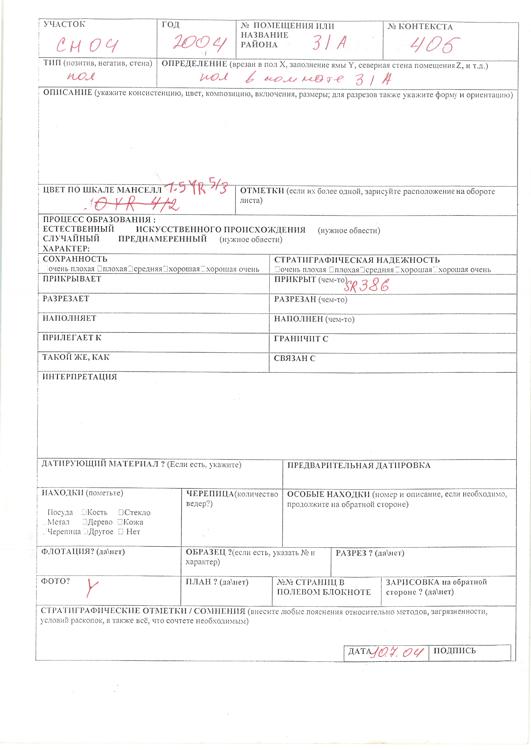 УЧАСТОК ГОД № ПОМЕЩЕНИЯ ИЛИ НАЗВАНИЕ РАЙОНА № КОНТЕКСТА
СН 04 2004 31А 406
ТИП (позитив, негатив, стена) ОПРЕДЕЛЕНИЕ (врезан в пол X, заполнение ямы Y, северная стена помещения Z, и т.д.)
пол пол в комнате 31А
ОПИСАНИЕ (укажите консистенцию, цвет, композицию, включения, размеры; для разрезов также укажите форму и ориентацию)
ЦВЕТ ПО ШКАЛЕ МАНСЕЛЛ 7.5 YR 5/3 ОТМЕТКИ (если их более одной, зарисуйте расположение на обороте
10YR 4/2 листа)
ПРОЦЕСС ОБРАЗОВАНИЯ :
ЕСТЕСТВЕННЫЙ ИСКУССТВЕННОГО ПРОИСХОЖДЕНИЯ (нужное обвести)
СЛУЧАЙНЫЙ ПРЕДНАМЕРЕННЫЙ (нужное обвести)
ХАРАКТЕР:
СОХРАННОСТЬ СТРАТИГРАФИЧЕСКАЯ НАДЕЖНОСТЬ
очень плохая □плохая□средняя□хорошая□хорошая очень □очень плохая □плохая□средняя□хорошая□хорошая очень
ПРИКРЫВАЕТ ПРИКРЫТ (чем-то) SR386
РАЗРЕЗАЕТ РАЗРЕЗАН (чем-то)
НАПОЛНЯЕТ НАПОЛНЕН (чем-то)
ПРИЛЕГАЕТ К ГРАНИЧИТ С
ТАКОЙ ЖЕ, КАК СВЯЗАН С
ИНТЕРПРЕТАЦИЯ
ДАТИРУЮЩИЙ МАТЕРИАЛ ? (Если есть, укажите) ПРЕДВАРИТЕЛЬНАЯ ДАТИРОВКА
НАХОДКИ (пометьте) ЧЕРЕПИЦА(количество ведер?) ОСОБЫЕ НАХОДКИ (номер и описание, если необходимо, продолжите на обратной стороне)
Посуда □Кость □Стекло
Метал □Дерево □Кожа
Черепица □Другое □ Нет
ФЛОТАЦИЯ? (да\нет) ОБРАЗЕЦ ?(если есть, указать № и характер) РАЗРЕЗ ? (да\нет)
ФОТО? Y ПЛАН ? (да\нет) №№ СТРАНИЦ В ПОЛЕВОМ БЛОКНОТЕ ЗАРИСОВКА на обратной стороне ? (да\нет)
СТРАТИГРАФИЧЕСКИЕ ОТМЕТКИ / СОМНЕНИЯ (внесите любые пояснения относительно методов, загрязненности,
условий раскопок, а также всё, что сочтете необходимым)
ДАТА 10.7.04 ПОДПИСЬ